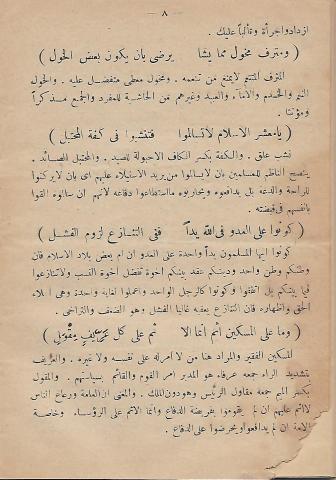 — ٨ —
ازدادوا جرأة وتألباً عليك .
( ومترف مخول مما يشا يرضى بان يكون بعض الخول )
المترف المتنعم لايمنع من تنعمه . ومخول معطى متفضل عليه . والخول
النعم والخدم والاماء والعبيد وغيرهم من الحاشية للمفرد والجمع مذكراً
ومؤنثا .
( يامعشر الاسلام لاتسالموا فتنشبوا فى كفة المحتبل )
نشب علق . والكفة بكسر الكاف الاحبولة للصيد . والمحتبل الصائد .
ينصح الناظم للمسلمين بان لايسالموا من يريد الاستيلاء عليهم اى بان لايركنوا
للراحة والدعة بل يدافعوه ويحاربوه ما استطاعوا دفاعه لانهم ان سالموه القوا
بانفسهم فى قبضته .
( كونوا على العدو فى الله يداً ففى التنازع لزوم الفشل )
كونوا ايها المسلمون يداً واحدة على العدو ان ام بعض بلاد الاسلام فان
وطنكم وطن واحد ودينكم عقد بينكم اخوة تفضل اخوة النسب ولاتتنازعوا
فيما بينكم بل اتفقوا وكونوا كالرجل الواحد واعملوا لغاية واحدة وهى اعلاء
الحق واظهاره فان التنازع يعقبه غالبا الفشل وهو الضعف والتراخى .
( وما على المسكين اثم انما الا ثم على كل عريف مقول )
المسكين الفقير والمراد هنا من لا امر له على نفسه ولا غيره . والعريف
بتشديد الراء جمعه عرفاء هو المدبر امر القوم والقائم بسياستهم . والمقول
بكسر الميم جمعه مقاول الرئيس وهو دون الملك . والمعنى ان العامة ورعاع الناس
لا اثم عليهم ان لم يقوموا بفريضة الدفاع وانما الاثم على الرؤساء وخاصة
الامة ان لم يدافعوا ويحرضوا على الدفاع .